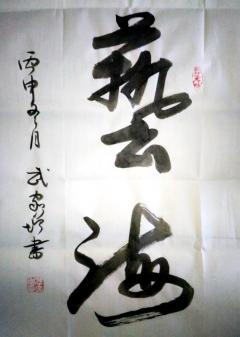 藝海
丙申冬月 武家增書